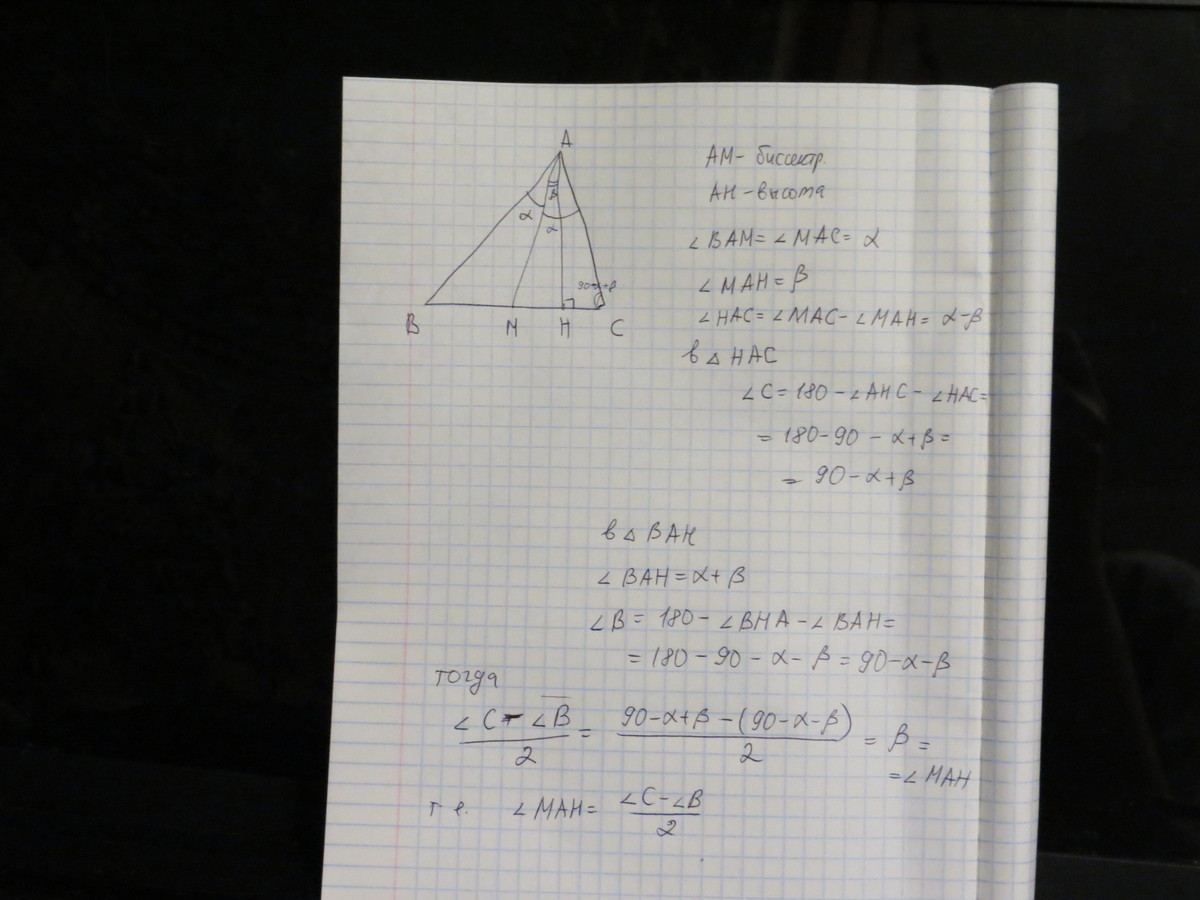 A
α
β
α
90-α+β
B M H C
AM- биссектр.
AH-высота
∠BAM=∠MAC=α
∠MAH=β
∠HAC=∠MAC-∠MAH=α-β
в △HAC
∠C=180-∠AHC-∠HAC=
=180-90-α+β=
=90-α+β
в △BAH
∠BAH=α+β
∠B=180-∠BHA-∠BAH=
=180-90-α-β=90-α-β
тогда
(∠C-∠B)/2=(90-α+β-(90-α-β))/2=β=
=∠MAH
т е. ∠MAH=(∠C-∠B)/2